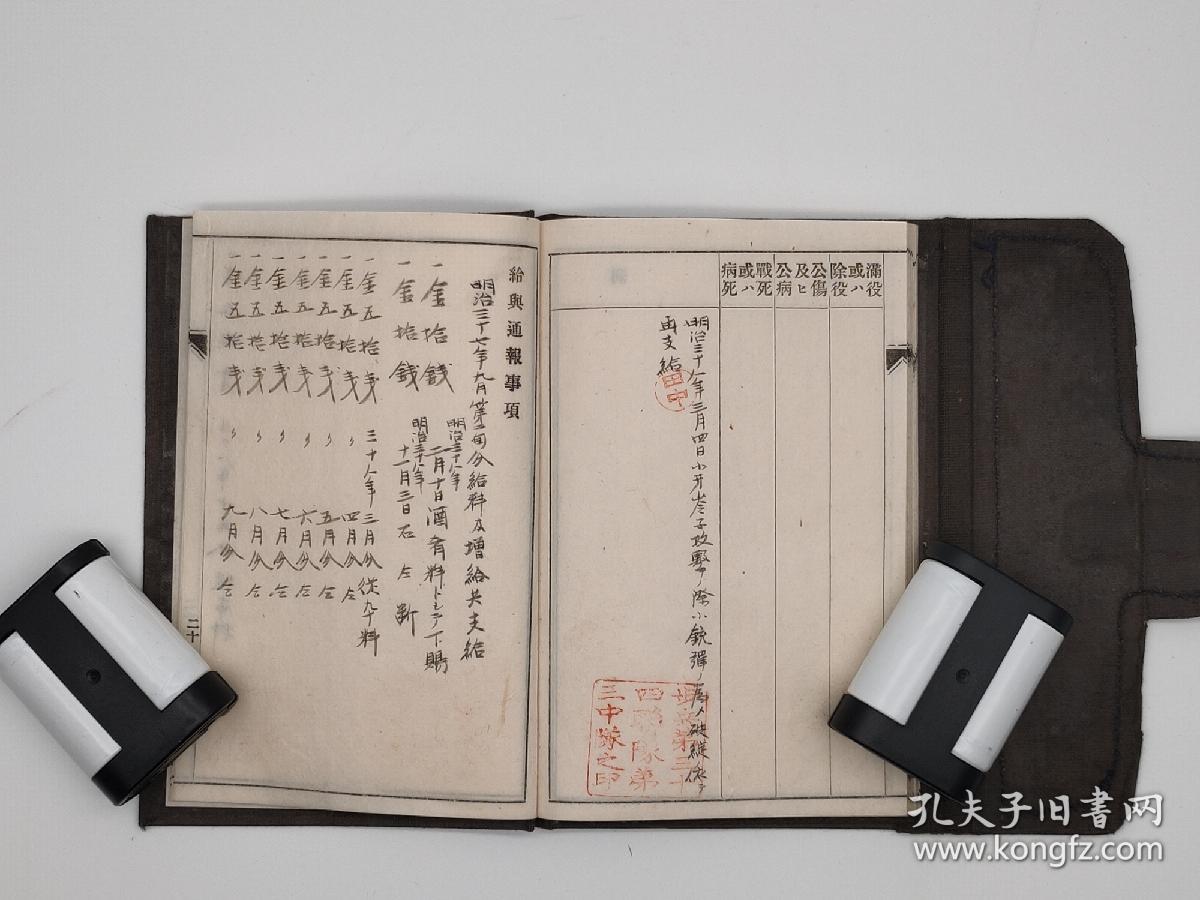 満役
或ハ
除役
公傷
及ヒ
公病
戰死
或ハ
病死
明治三十八年三月四日小
攻擊ノ際小銃彈ノ為メ破
再支給
田中
第三十
四聯隊第
三中隊之印
給與通報事項
明治三十七年九月第二旬分給料及増給共支給
一金拾錢 明治三十八年二月十日酒肴料トシテ下賜
一金拾錢 明治三十八年十一月三日右仝断
一金五拾戋 三十八年三月分従卆料
一金五拾戋 〃 四月分仝
一金五拾戋 〃 五月分仝
一金五拾戋 〃 六月分仝
一金五拾戋 〃 七月分仝
一金五拾戋 〃 八月分仝
一金五拾戋 〃 九月分仝
二十
孔夫子旧书网
www.kongfz.com